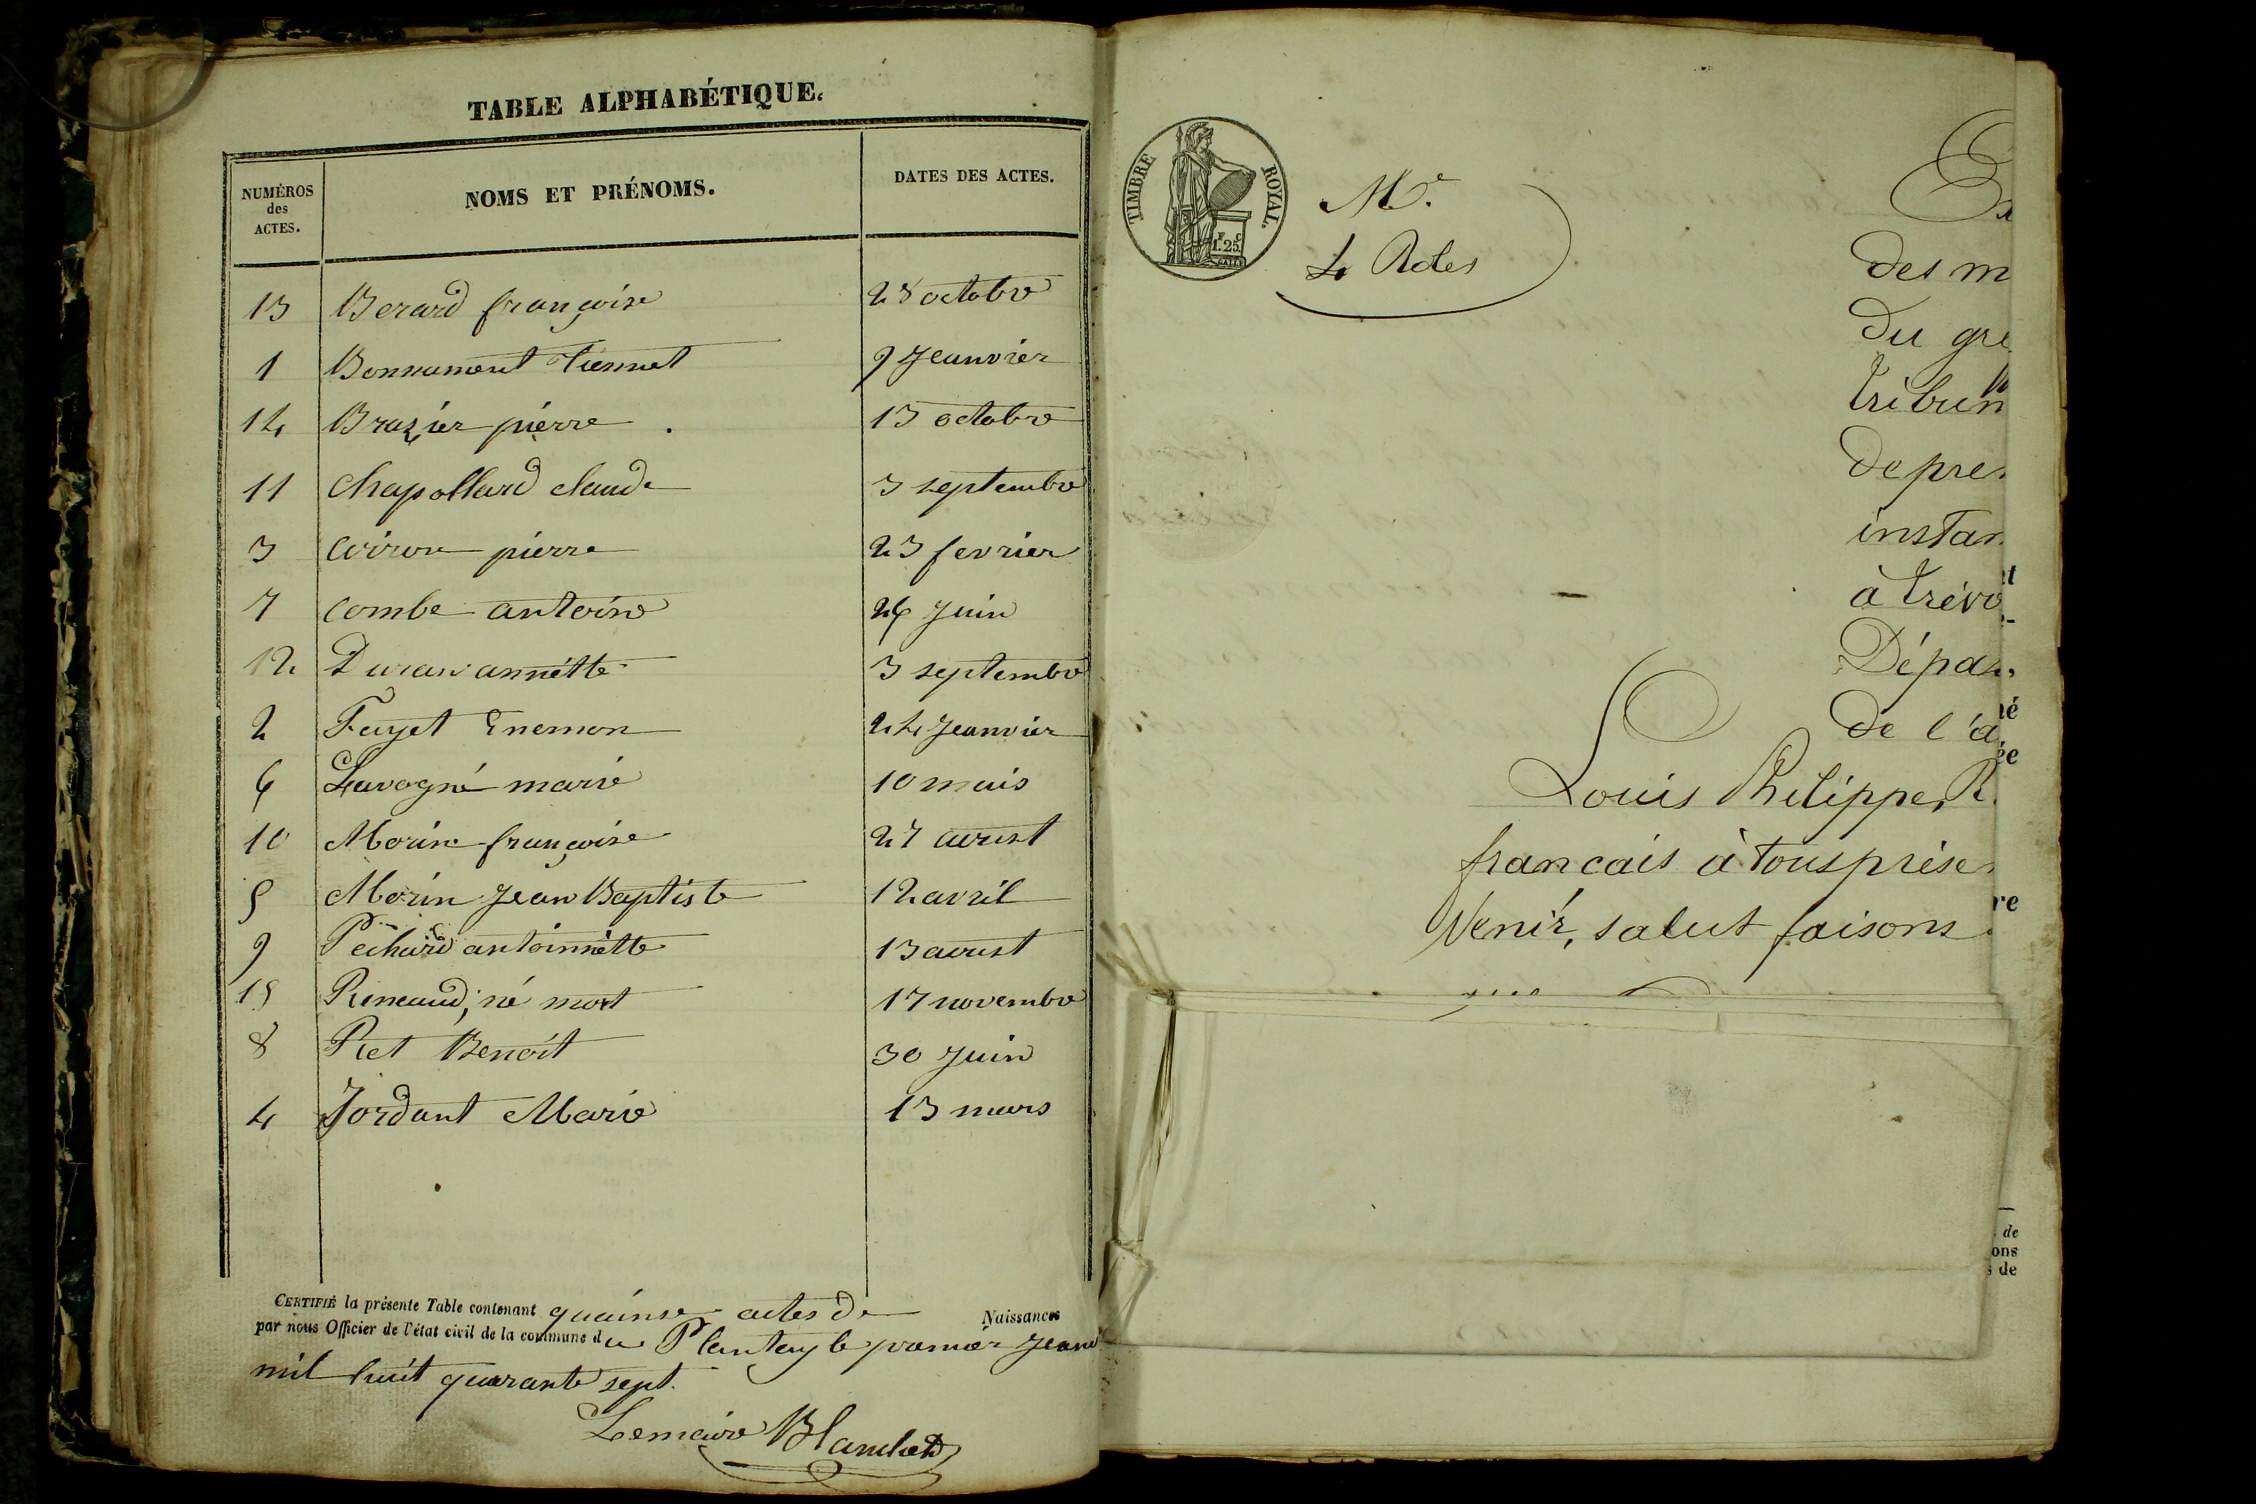 TABLE ALPHABÉTIQUE.
NUMÉROS des ACTES. NOMS ET PRÉNOMS. DATES DES ACTES.
13 Berard françoise 28 octobre
1 Bonnament Tiennet 9 Jeanvier
14 Brazier pierre 13 octobre
11 Chapollard claude 3 septembre
3 Coiron pierre 23 fevrier
7 Combe antoine 26 Juin
12 Duran annétte 3 septembre
2 Fayet Enemon 24 Jeanvier
6 Lavogné marie 10 mais
10 Morin françoise 27 aoust
5 Morin Jean Baptiste 12 avril
9 Pechard antoinnètte 13 aoust
15 Reneaud, né mort 17 novembre
8 Piet Benoit 30 Juin
4 Jordant Marie 13 mars
CERTIFIÉ la présente Table contenant quainse actes de Naissances
par nous Officier de l'état civil de la commune du Plantay le premier Jeanv
mil huit quarante sept.
Lemaire Blanchet
TIMBRE ROYAL.
F C
1.25
Mr.
4 Roles
des m
du gre
tribun
de pre
instan
à trévo
Dépar
de l'a
Louis Philippe, R
francais à tous prése
Venir, salut faisons
et
né
ée
re
de
ons
s de